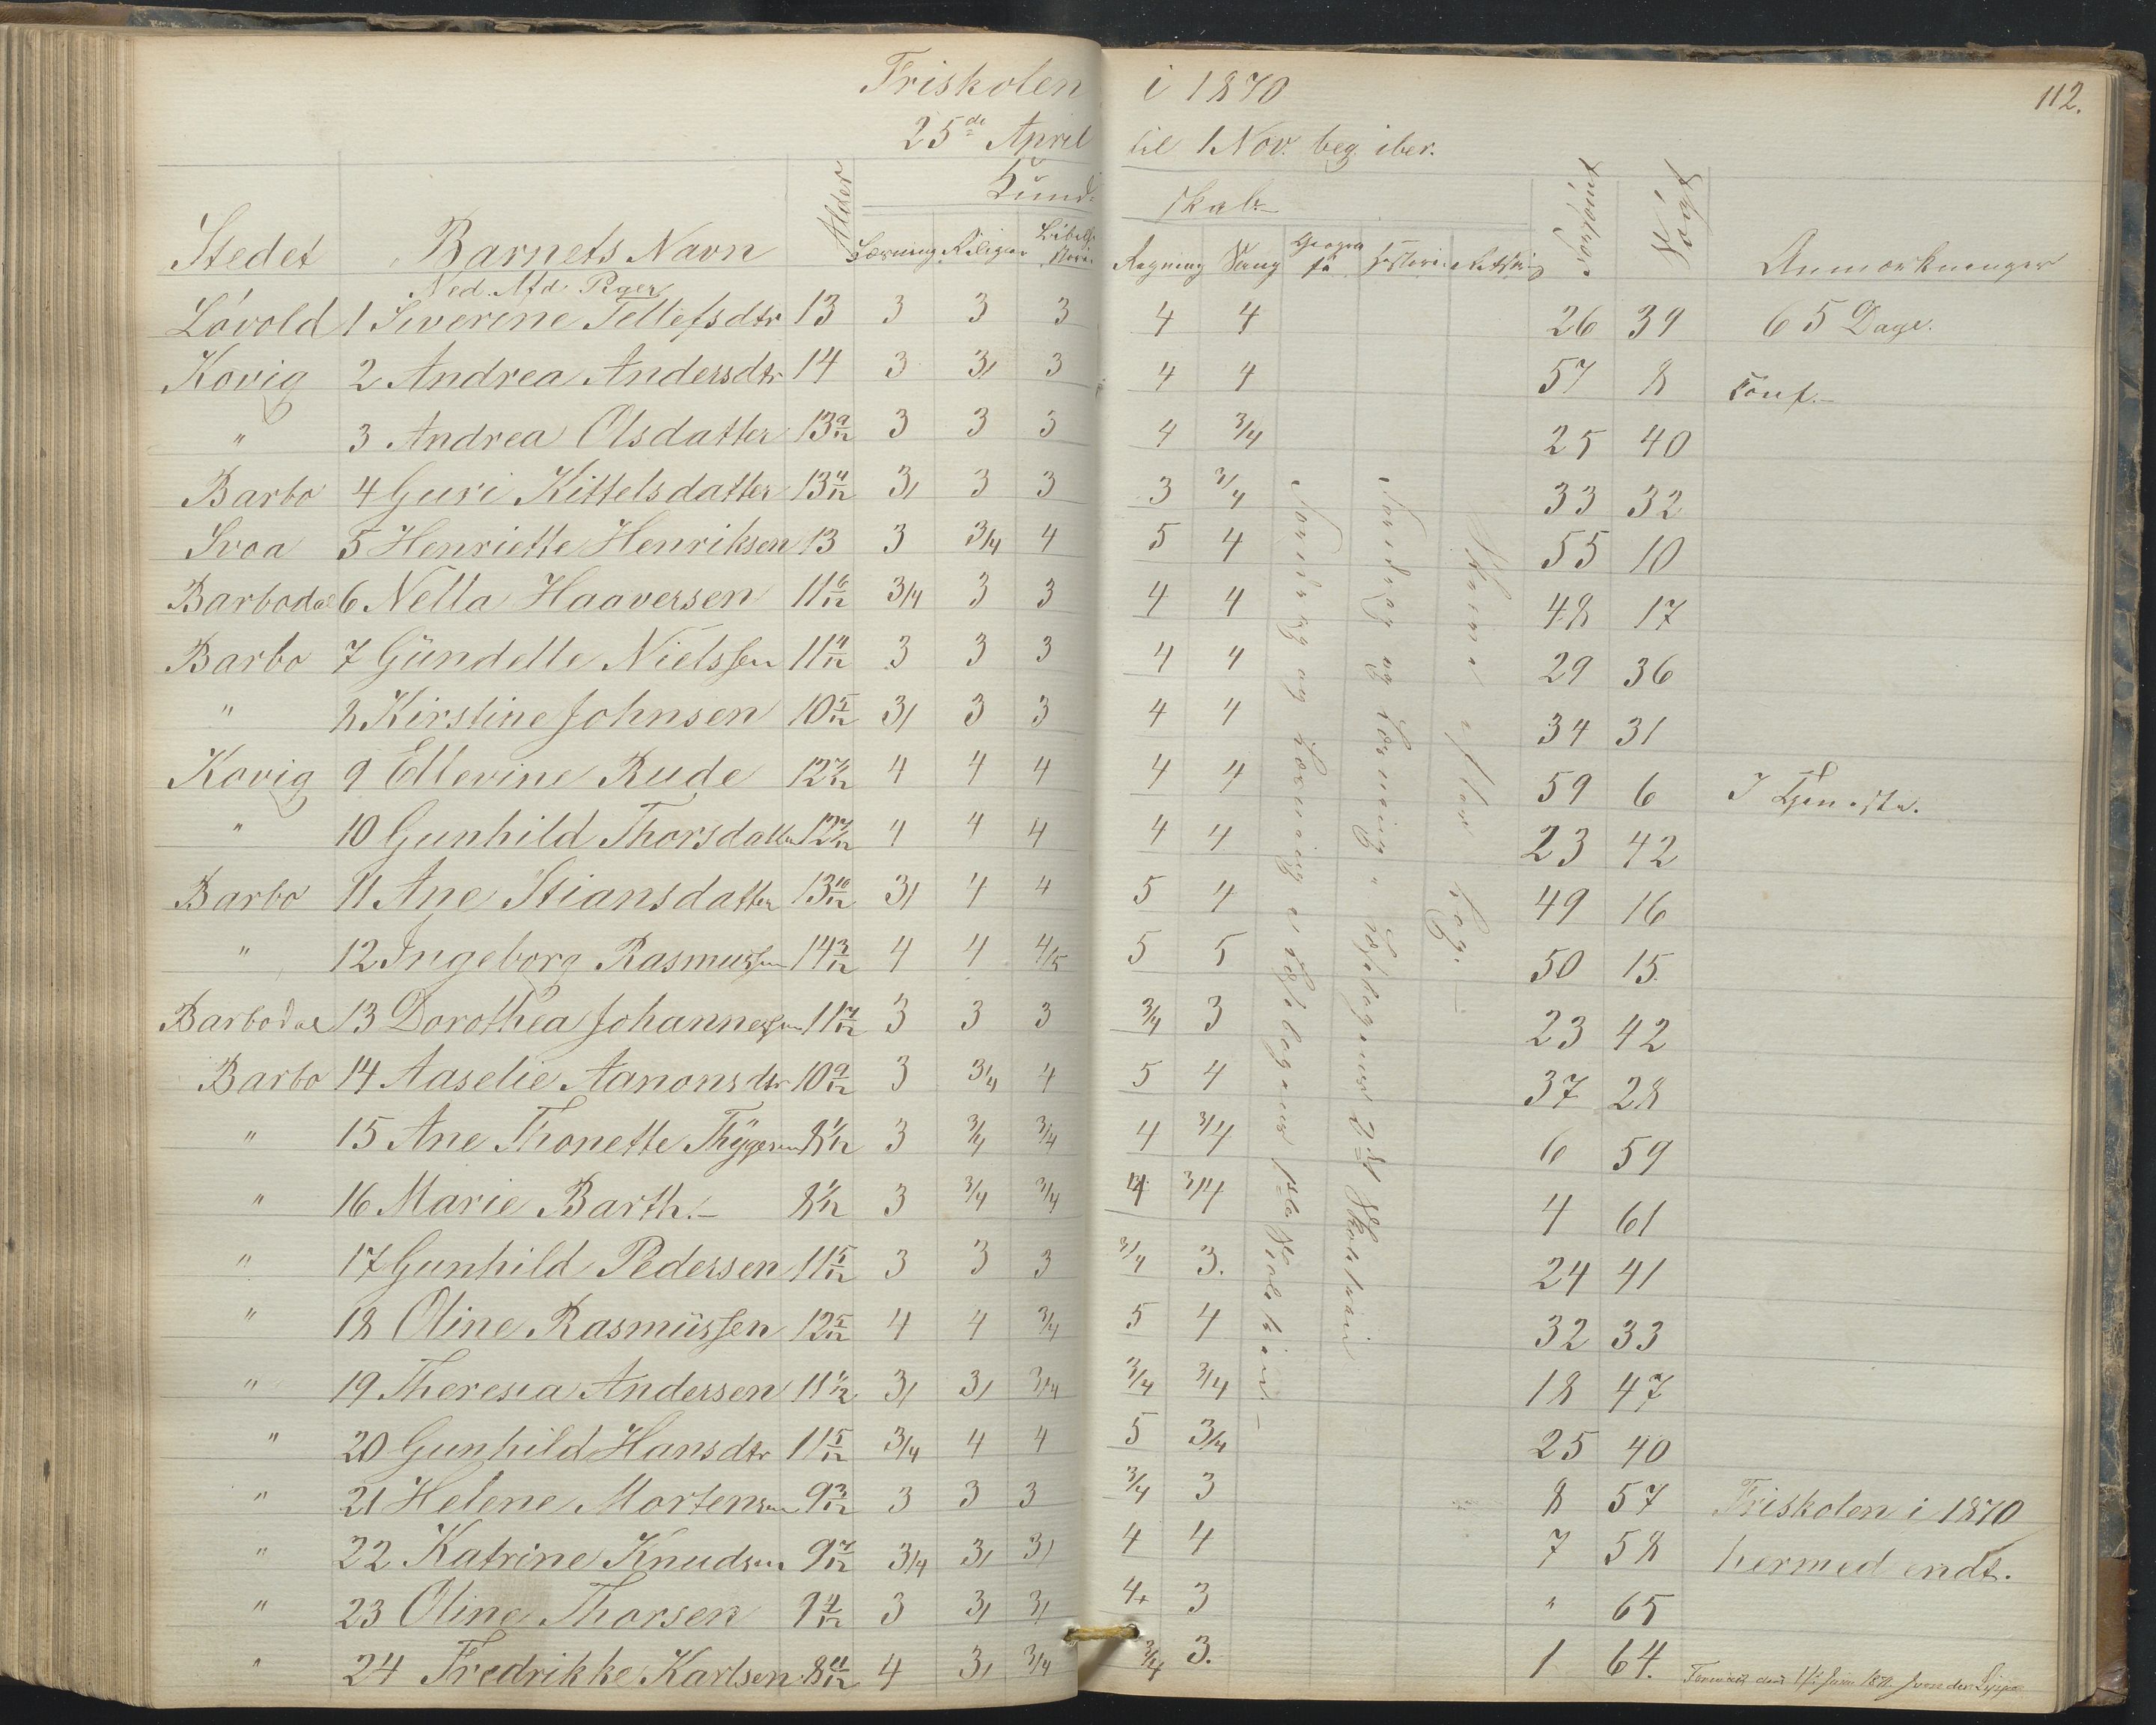 Friskolen i 1870
112.
25de April til 1 Nov. beg. iber.
Kund- skab:
Stedet Barnets Navn Alder Læsning Religion Bibelhi storie Regning Sang Geogra fi Historie Retskr. Forsømt Søgt Anmærkninger
Ned. Afd. Piger
Løvold 1 Siverine Tellefsdtr 13 3 3 3 4 4 26 39 65 Dage.
Kovig 2 Andrea Andersdtr 14 3 3/ 3 4 4 57 8 Conf.
" 3 Andrea Olsdatter 13 9/12 3 3 3 4 3/4 25 40
Barbo 4 Guri Kittelsdatter 13 11/12 3/ 3 3 3 3/4 33 32
Svoa 5 Henriette Henriksen 13 3 3/4 4 5 4 55 10
Barbodal 6 Nella Haaversen 11 6/12 3/4 3 3 4 4 48 17
Barbo 7 Gündelle Nielssen 11 4/12 3 3 3 4 4 29 36
" 8 Kirstine Johnsen 10 5/12 3/ 3 3 4 4 34 31
Kovig 9 Ellevine Rude 12 7/12 4 4 4 4 4 59 6 I Tjeneste.
" 10 Gunhild Thorsdatter 12 7/12 4 4 4 4 4 23 42
Barbo 11 Ane Stiansdatter 13 10/12 3/ 4 4 5 4 49 16
" 12 Ingeborg Rasmussen 14 3/12 4 4 4/5 5 5 50 15
Barbodal 13 Dorothea Johannessen 11 7/12 3 3 3 3/4 3 23 42
Barbo 14 Aaselie Aanonsdtr 10 9/12 3 3/4 4 5 4 37 28
" 15 Ane Thonette Thygesen 8 1/12 3 3/4 3/4 4 3/4 6 59
" 16 Marie Barth. 8 1/12 3 3/4 3/4 4 3/4 4 61
" 17 Gunhild Pedersen 11 5/12 3 3 3 3/4 3. 24 41
" 18 Oline Rasmüssen 12 5/12 4 4 3/4 5 4 32 33
" 19 Theresia Andersen 11 1/12 3/ 3/ 3/4 3/4 3/4 18 47
" 20 Gunhild Hansdtr 11 5/12 3/4 4 4 5 3/4 25 40
" 21 Helene Mortensen 9 3/12 3 3 3 3/4 3 8 57 Friskolen i 1870
" 22 Katrine Knudsen 9 7/12 3/4 3/ 3/ 4 4 7 58 hermed endt.
" 23 Oline Thorsen 9 4/12 3 3/ 3/ 4+ 3 " 65
" 24 Fredrikke Karlsen 8 11/12 4 3/ 3/4 3/4 3. 1 64.
Foredrag og Læsning i Læsebogens 1ste Skoletrin.
Foredrag og Læsning i Læsebogens 2det Skoletrin
Skrive efter Bog.